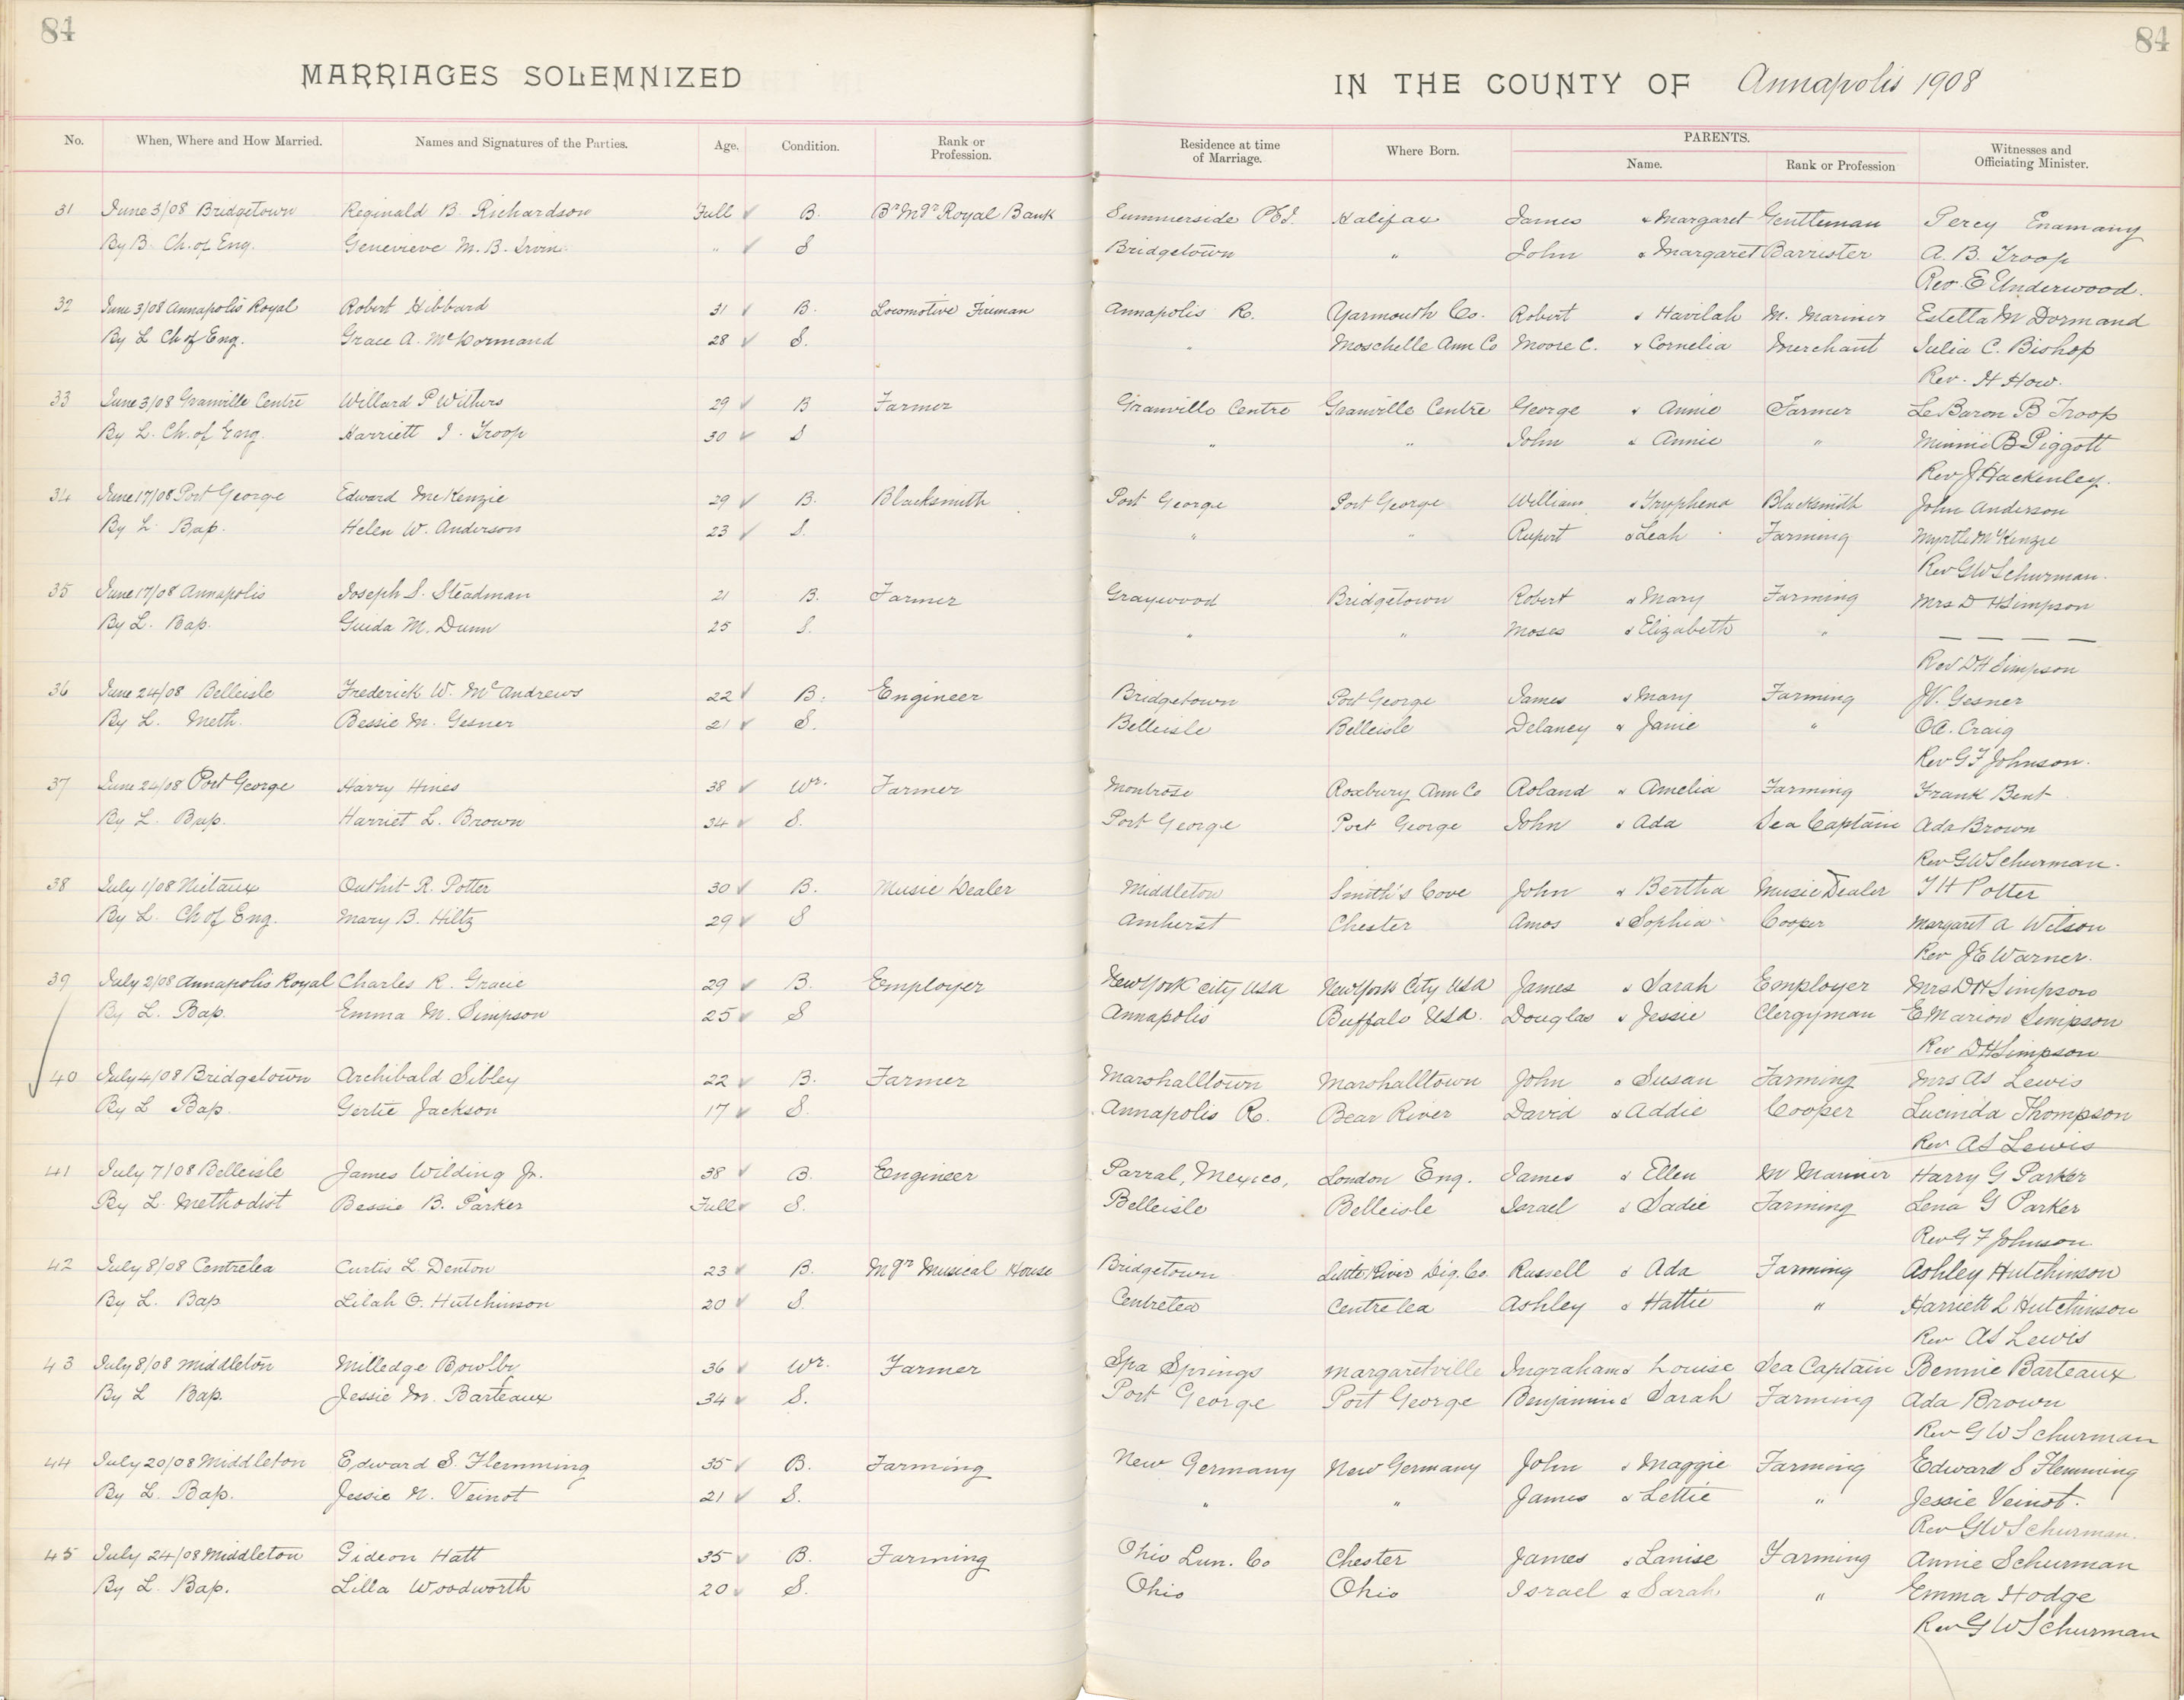 84
84
MARRIAGES SOLEMNIZED
IN THE COUNTY OF Annapolis 1908
No. When, Where and How Married. Names and Signatures of the Parties. Age. Condition. Rank or Profession. Residence at time of Marriage. Where Born. PARENTS. Name. Rank or Profession Witnesses and Officiating Minister.
31 June 3/08 Bridgetown Reginald B. Richardson Full B. Br Mgr Royal Bank Summerside P.E.I. Halifax James & Margaret Gentleman Percy
By B. Ch. of Eng. Genevieve M. B. Irvin " S Bridgetown " John & Margaret Barrister A. B. Troop
Rev. E Underwood.
32 June 3/08 Annapolis Royal Robert Hibbard 31 B. Locomotive Fireman Annapolis R. Yarmouth Co. Robert & Havilah M. Mariner Estella McDormand
By L Ch of Eng. Grace A. McDormand 28 S. " Moschelle Ann Co Moore C. & Cornelia Merchant Julia C. Bishop
Rev. H How.
33 June 3/08 Granville Centre Willard P Withers 29 B Farmer Granville Centre Granville Centre George & Annie Farmer LeBaron B Troop
By L. Ch. of Eng. Harriett I. Troop 30 S " " John & Annie " Minnie B Piggott
Rev J Hackenley.
34 June 17/08 Port George Edward McKenzie 29 B. Blacksmith Port George Port George William & Tryphena Blacksmith John Anderson
By L. Bap. Helen W. Anderson 23 S. " " Rupert & Leah Farming Myrtle McKenzie
Rev GW Schurman.
35 June 17/08 Annapolis Joseph S. Steadman 21 B. Farmer Graywood Bridgetown Robert & Mary Farming Mrs D H Simpson
By L. Bap. Guida M. Dunn 25 S. " " Moses & Elizabeth " — — — —
Rev D H Simpson
36 June 24/08 Belleisle Frederick W. McAndrews 22 B. Engineer Bridgetown Port George James & Mary Farming J V. Gesner
By L. Meth. Bessie M. Gesner 21 S. Belleisle Belleisle Delaney & Janie " Craig
Rev G F Johnson.
37 June 24/08 Port George Harry Hines 38 Wr. Farmer Montrose Roxbury Ann Co Roland & Amelia Farming Frank Bent
By L. Bap. Harriet L. Brown 34 S. Port George Port George John & Ada Sea Captain Ada Brown
Rev GW Schurman.
38 July 1/08 Nictaux Outhit R. Potter 30 B. Music Dealer Middleton Smith's Cove John & Bertha Music Dealer T H Potter
By L. Ch of Eng. Mary B. Hiltz 29 S Amherst Chester Amos & Sophia Cooper Margaret A Wilson
Rev J E Warner.
39 July 2/08 Annapolis Royal Charles R. Graue 29 B. Employer New York City USA New York City USA James & Sarah Employer Mrs D H Simpson
By L. Bap. Emma M. Simpson 25 S Annapolis Buffalo USA. Douglas & Jessie Clergyman E Marion Simpson
Rev D H Simpson
40 July 4/08 Bridgetown Archibald Sibley 22 B. Farmer Marshalltown Marshalltown John & Susan Farming Mrs AS Lewis
By L Bap. Gertie Jackson 17 S. Annapolis R. Bear River David & Addie Cooper Lucinda Thompson
Rev A S Lewis
41 July 7/08 Belleisle James Wilding Jr. 38 B. Engineer Parral, Mexico, London Eng. James & Ellen M Mariner Harry G Parker
By L. Methodist Bessie B. Parker Full S. Belleisle Belleisle Israel & Sadie Farming Lena G Parker
Rev G F Johnson
42 July 8/08 Centrelea Curtis L Denton 23 B. Mgr Musical House Bridgetown Little River Dig. Co. Russell & Ada Farming Ashley Hutchinson
By L. Bap Lilah O. Hutchinson 20 S. Centrelea Centrelea Ashley & Hattie " Harriett L Hutchinson
Rev AS Lewis
43 July 8/08 Middleton Milledge Bowlby 36 Wr. Farmer Spa Springs Margaretville Ingraham & Louise Sea Captain Bennie Barteaux
By L Bap. Jessie M. Barteaux 34 S. Port George Port George Benjamin & Sarah Farming Ada Brown
Rev G W Schurman
44 July 20/08 Middleton Edward S. Flemming 35 B. Farming New Germany New Germany John & Maggie Farming Edward S Flemming
By L. Bap. Jessie N. Veinot 21 S. " " James & Lettie " Jessie Veinot.
Rev GW Schurman.
45 July 24/08 Middleton Gideon Hatt 35 B. Farming Ohio Lun. Co Chester James & Lanise Farming Annie Schurman
By L. Bap. Lilla Woodworth 20 S. Ohio Ohio Israel & Sarah " Emma Hodge
Rev G W Schurman